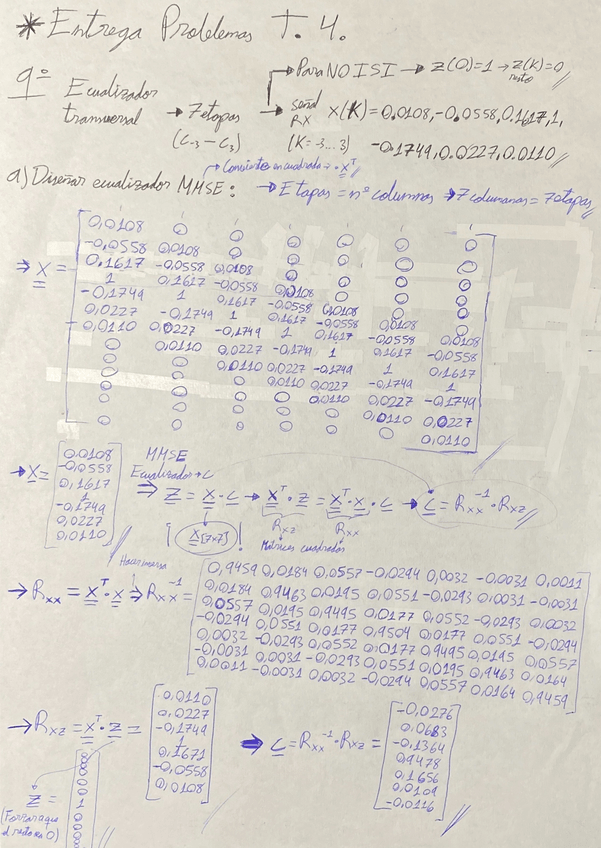 * Entrega Problemas T. 4.
9º Ecualizador transversal → 7 etapas (C-3 – C3)
→ Para NO ISI → z(0)=1 → z(K)=0 resto
→ señal RX X(K)=0.0108,-0.0558,0.1617,1,
(K=-3...3) -0.1749,0.0227,0.0110
a) Diseñar ecualizador MMSE:
→ Convierte en cuadrada · X^T
→ Etapas = nº columnas → 7 columnas = 7 etapas
⇒ X =
0,0108 0 0 0 0 0 0
-0,0558 0,0108 0 0 0 0 0
0,1617 -0,0558 0,0108 0 0 0 0
1 0,1617 -0,0558 0,0108 0 0 0
-0,1749 1 0,1617 -0,0558 0,0108 0 0
0,0227 -0,1749 1 0,1617 -0,0558 0,0108 0
0,0110 0,0227 -0,1749 1 0,1617 -0,0558 0,0108
0 0,0110 0,0227 -0,1749 1 0,1617 -0,0558
0 0 0,0110 0,0227 -0,1749 1 0,1617
0 0 0 0,0110 0,0227 -0,1749 1
0 0 0 0 0,0110 0,0227 -0,1749
0 0 0 0 0 0,0110 0,0227
0 0 0 0 0 0 0,0110
→ X =
0,0108
-0,0558
0,1617
1
-0,1749
0,0227
0,0110
MMSE
Ecualizador → C
⇒ Z = X · C → X^T · Z = X^T · X · C → C = Rxx^-1 · Rxz
¡ X[7x7] !
Rxz Rxx
Matrices cuadradas
Hacer inversa
→ Rxx = X^T · X ⇒ Rxx^-1 =
0,9459 0,0184 0,0557 -0,0294 0,0032 -0,0031 0,0011
0,0184 0,9463 0,0195 0,0551 -0,0293 0,0031 -0,0031
0,0557 0,0195 0,9495 0,0177 0,0552 -0,0293 0,0032
-0,0294 0,0551 0,0177 0,9504 0,0177 0,0551 -0,0294
0,0032 -0,0293 0,0552 0,0177 0,9495 0,0195 0,0557
-0,0031 0,0031 -0,0293 0,0551 0,0195 0,9463 0,0164
0,0011 -0,0031 0,0032 -0,0294 0,0557 0,0164 0,9459
→ Rxz = X^T · Z =
0,0110
0,0227
-0,1749
1
0,1671
-0,0558
0,0108
⇒ C = Rxx^-1 · Rxz =
-0,0276
0,0683
-0,1364
0,9478
0,1656
0,0109
-0,0116
Z =
0
0
0
0
0
0
1
0
0
0
0